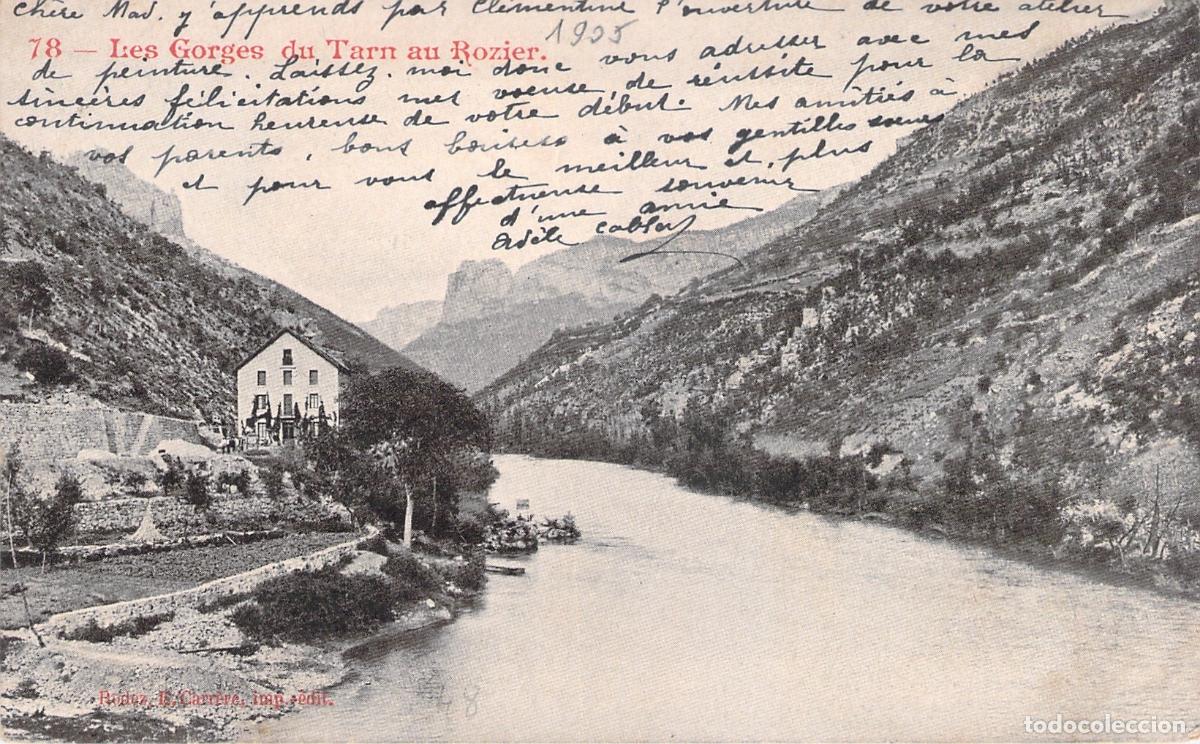 Chère Mad. j'apprends par Clémentine l'ouverture de votre atelier
78 — Les Gorges du Tarn au Rozier.
1905
de peinture. Laissez-moi donc vous adresser avec mes
sincères félicitations mes voeux de réussite pour la
continuation heureuse de votre début. Mes amitiés à
vos parents, bons baisers à vos gentilles soeurs
et pour vous le meilleur et plus
affectueuse souvenir
d'une amie
Adèle
Rodez, E. Carrère, imp.-édit.
48
todocoleccion